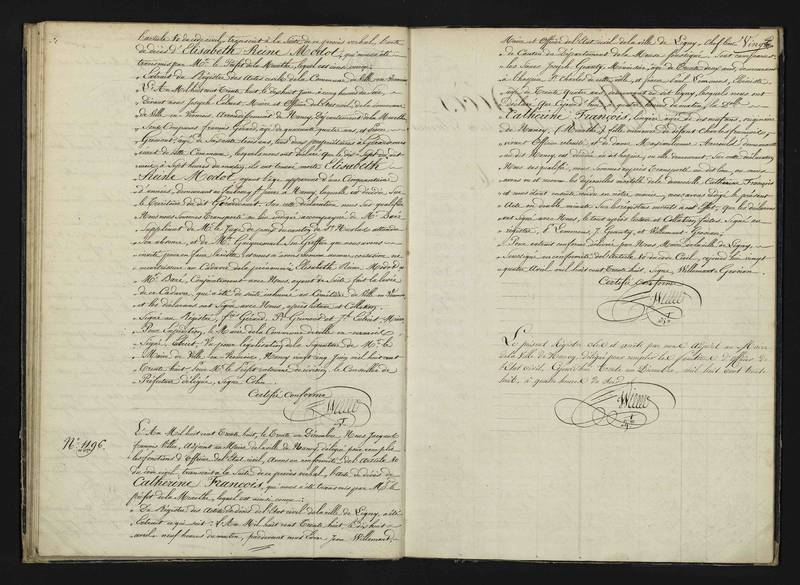 l'article 80 du code civil, transcrit à la suite de ce procès verbal, l'acte
de décès d'Elisabeth Reine Modot, qui nous a été
transmis par Mr. le Préfet de la Meurthe, lequel est ainsi conçu:
Extrait des Registres des Actes civils de la Commune de Ville en Vermois
L'An Mil huit cent Trente huit, le dix huit Juin, à cinq heures du soir,
devant nous Joseph Exbriet Maire et Officier de l'état civil, de la commune
de Ville en Vermois, Arrondissement de Nancy, Département de la Meurthe
Sont Comparus François Gérard, âgé de quarante quatre ans, et Pierre
Grimont, âgé de trente trois ans, tous deux propriétaires à Gérardcourt
Elisabeth
Reine Modot, pour l'âge apparent d'une Cinquantaine
d'années, demeurant au faubourg St. Pierre de Nancy, laquelle est décédée sur
le Territoire dudit Gérardcourt. Sur cette déclaration, Nous Sus qualifié
Nous nous sommes Transporté au lieu indiqué accompagné de Mr. Baré
Suppléant de Mr. le Juge de paix du canton de St. Nicolas attendu
son absence, et de Mr. Guiguemel, Son Greffier qui nous avons
au Cadavre de la prénommée Elisabeth Reine Modot
Mr. Baré, Conjointement avec Nous, ayant de Suite fait la levée
de ce Cadavre, qui a été de suite inhumé au Cimetière de Ville en Vermois
et les déclarans ont Signé avec Nous, après lecture et Collation
Signé au Registre, fs. Gérard, Pre. Grimont et Jh. Exbriet Maire
Pour Expédition, le Maire de la Commune de Ville en Vermois
Vu pour légalisation de la Signature de Mr. le
Maire de Ville en Vermois, Nancy vingt cinq Juin mil huit cent
Trente huit, pour Mr. le Préfet en tournée de révision, le Conseiller de
Préfecture délégué, Signé Cohn
Certifié conforme
N° 1196.
L'An Mil huit cent Trente huit, le Trente un Décembre, Nous Jacques
françois Welche, Adjoint au Maire de la ville de Nancy, délégué pour remplir
les fonctions d'Officier de l'état civil, avons en conformité de l'Article 80
du code civil, transcrit à la Suite de ce procès verbal, l'acte de décès de
Catherine François, qui nous a été transmis par Mr. le
Préfet de la Meurthe, lequel est ainsi conçu:
Du Registre des Actes de décès de l'état civil de la ville de Ligny, a été
Extrait ce qui suit: L'An Mil huit cent Trente huit, le dix huit
avril, neuf heures du matin, pardevant nous Jean Willemart,
Maire et Officier de l'état civil de la ville de Ligny, Chef lieu
de Canton du Département de la Meuse Soussigné. Sont comparus
les Sieurs Joseph Granty, Menuisier, âgé de Trente deux ans, demeurant
à l'hospice St. Charles de cette ville, et Jean Paul Lemmens,
âgé de Trente Quatre ans, demeurant au dit Ligny, lesquels nous ont
Déclaré que Cejourd'hui, à quatre heures du matin, la Dlle.
Catherine François, lingère, âgée de dix neuf ans, originaire
de Nancy, (Meurthe) fille mineure de défunt Charles François,
vivant Officier retraité et de Dame Maximilienne Arnould demeurant
au dit Nancy est décédée au dit hospice, en cette demeurant. Sur cette déclaration
Nous sus qualifié, nous sommes exprès transporté au dit lieu, où nous
avons vu et reconnu la dépouille mortelle de la demoiselle Catherine François
et nous étant ensuite rendu en notre mairie, nous avons rédigé le présent
Acte en double minute sur les registres ouverts à cet effet, que les déclarans
ont Signé avec Nous, le tout après lecture et Collation faites. Signé au
registre, P. Lemmens, J. Granty, et Willemart Gervison
Pour extrait conforme délivré par Nous, Maire de la ville de Ligny,
Soussigné en conformité de l'Article 80 du Code Civil, cejourd'hui vingt
quatre Avril mil huit cent Trente huit, Signé Willemart Gervison
Certifié conforme
Le présent Registre clos et arrêté par nous Adjoint au Maire
de la Ville de Nancy, délégué pour remplir les fonctions d'Officier de
l'état civil, Cejourd'hui Trente un Décembre, mil huit cent Trente
huit, à quatre heures du soir